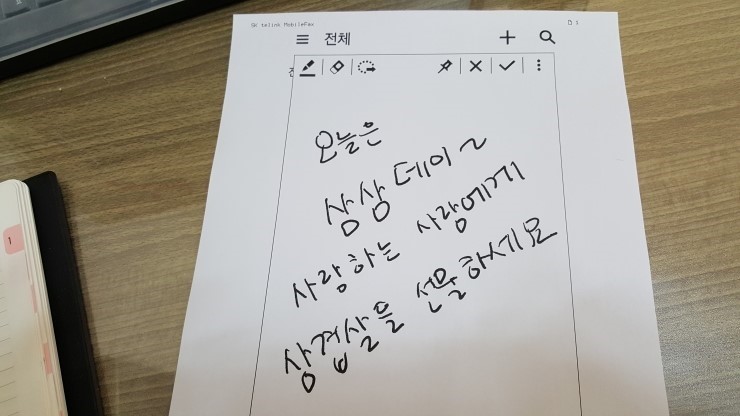 SK telink MobileFax
전체
오늘은
삼삼데이~
사랑하는 사람에게
삼겹살을 선물하세요
1